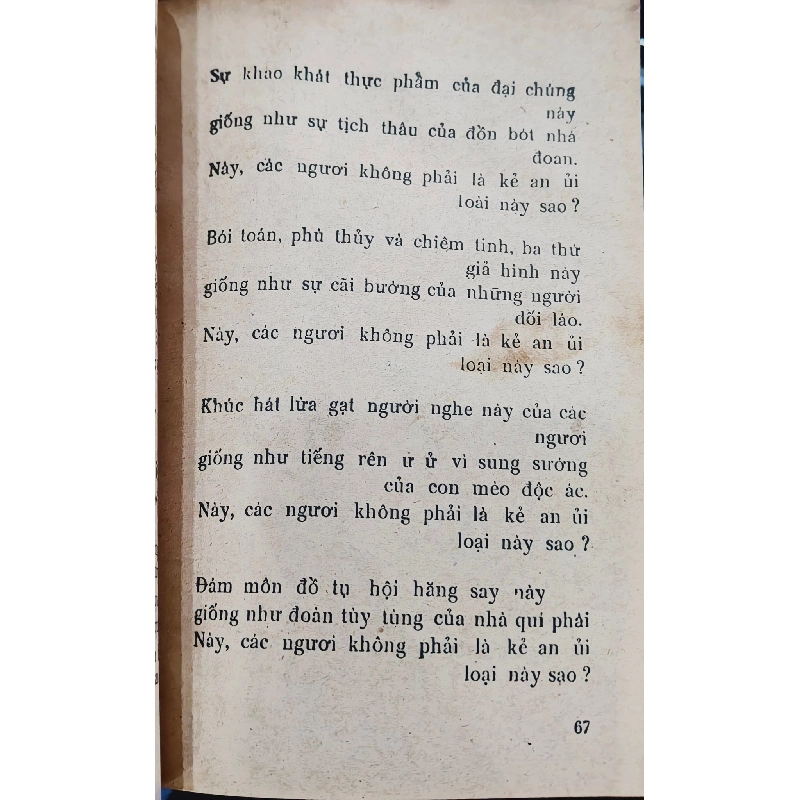 Sự khao khát thực phẩm của đại chúng
này
giống như sự tịch thâu của đồn bót nhà
đoan.
Này, các ngươi không phải là kẻ an ủi
loài này sao ?
Bói toán, phù thủy và chiêm tinh, ba thứ
giả hình này
giống như sự cãi bướng của những người
dối láo.
Này, các ngươi không phải là kẻ an ủi
loại này sao ?
Khúc hát lừa gạt người nghe này của các
ngươi
giống như tiếng rên ư ử vì sung sướng
của con mèo độc ác.
Này, các ngươi không phải là kẻ an ủi
loại này sao ?
Đám môn đồ tụ hội hăng say này
giống như đoàn tùy tùng của nhà quí phái
Này, các ngươi không phải là kẻ an ủi
loại này sao ?
67